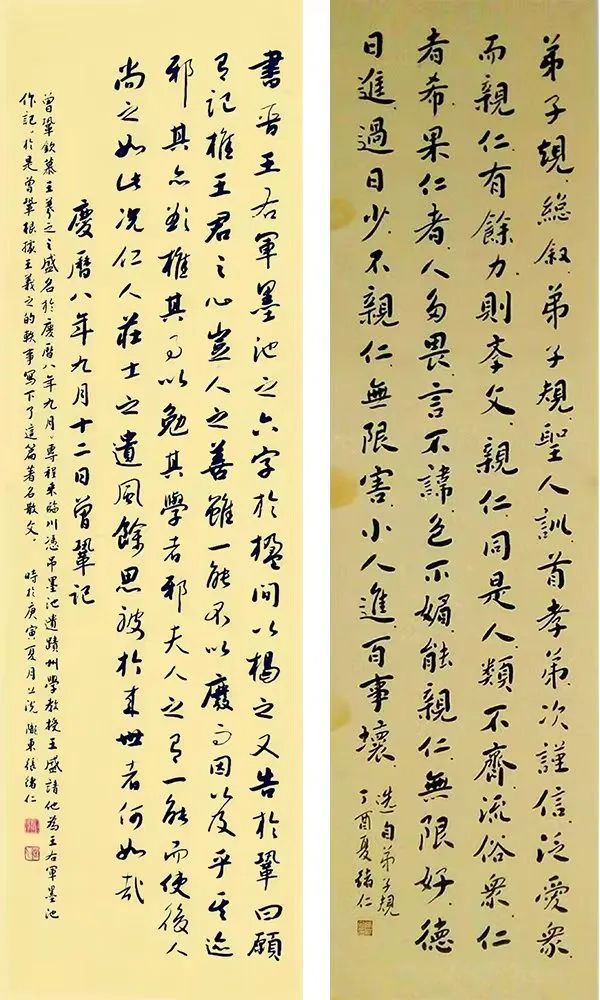 書晉王右軍墨池之六字於楹間以揭之又告於鞏曰願
有記推王君之心豈人之善雖一能不以廢而因以及乎其迹
邪其亦欲推其事以勉其學者邪夫人之有一能而使後人
尚之如此況仁人莊士之遺風餘思被於來世者何如哉
慶曆八年九月十二日曾鞏記
曾鞏欽慕王羲之之盛名於慶曆八年九月。專程來臨川憑吊墨池遺蹟州學教授王盛請他為王右軍墨池
作記。於是曾鞏根據王羲之的軼事寫下了這篇著名散文。 時於庚寅夏月上浣 張緒仁
弟子規總敘弟子規聖人訓首孝弟次謹信泛愛眾
而親仁有餘力則孝父親仁同是人類不齊流俗眾仁
者希果仁者人多畏言不諱色不媚能親仁無限好德
日進過日少不親仁無限害小人進百事壞
選自弟子規
丁酉夏緒仁